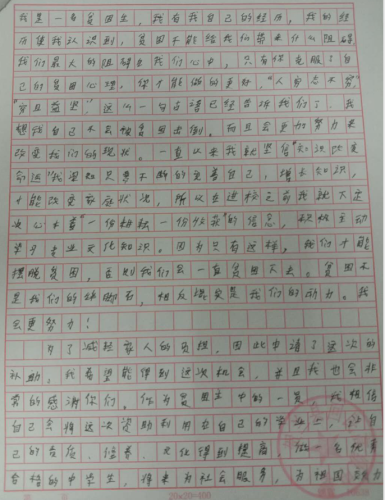 我是一名贫困生,我有我自己的经历,我的经
历使我认识到,贫困不能给我们带来什么阻碍
我们最大的阻碍在我们心中,只有你克服了自
己的贫困心理,你才能做的更好,"人穷志不穷"
"穷且益坚",这么一句古语已经告诉我们了,我
相信自己不会被贫困击倒。而且会更加努力来
改变我们的现状。一直以来我就坚信"知识改变
命运"我要只要不断的完善自己,增长知识,
才能改变家庭状况,所以在进校之前我就下定
决心本着"一份耕耘一份收获的信念,积极主动
学习专业文化知识。因为只有这样,我们才能
摆脱贫困,否则我们会一直贫困下去。贫困不
是我们的绊脚石,相反它是我们的动力。我
会更努力!
为了减轻家人的负担,因此申请了这次的
补助,我希望能得到这次机会,并且我也会非
常的感谢你们。作为贫困生中的一员,我相信
自己会将这次资助利用在自己的学业上,让自
己的言行、修养、文化得到提高,做一名优秀
合格的中学生,将来为社会服务,为祖国效力